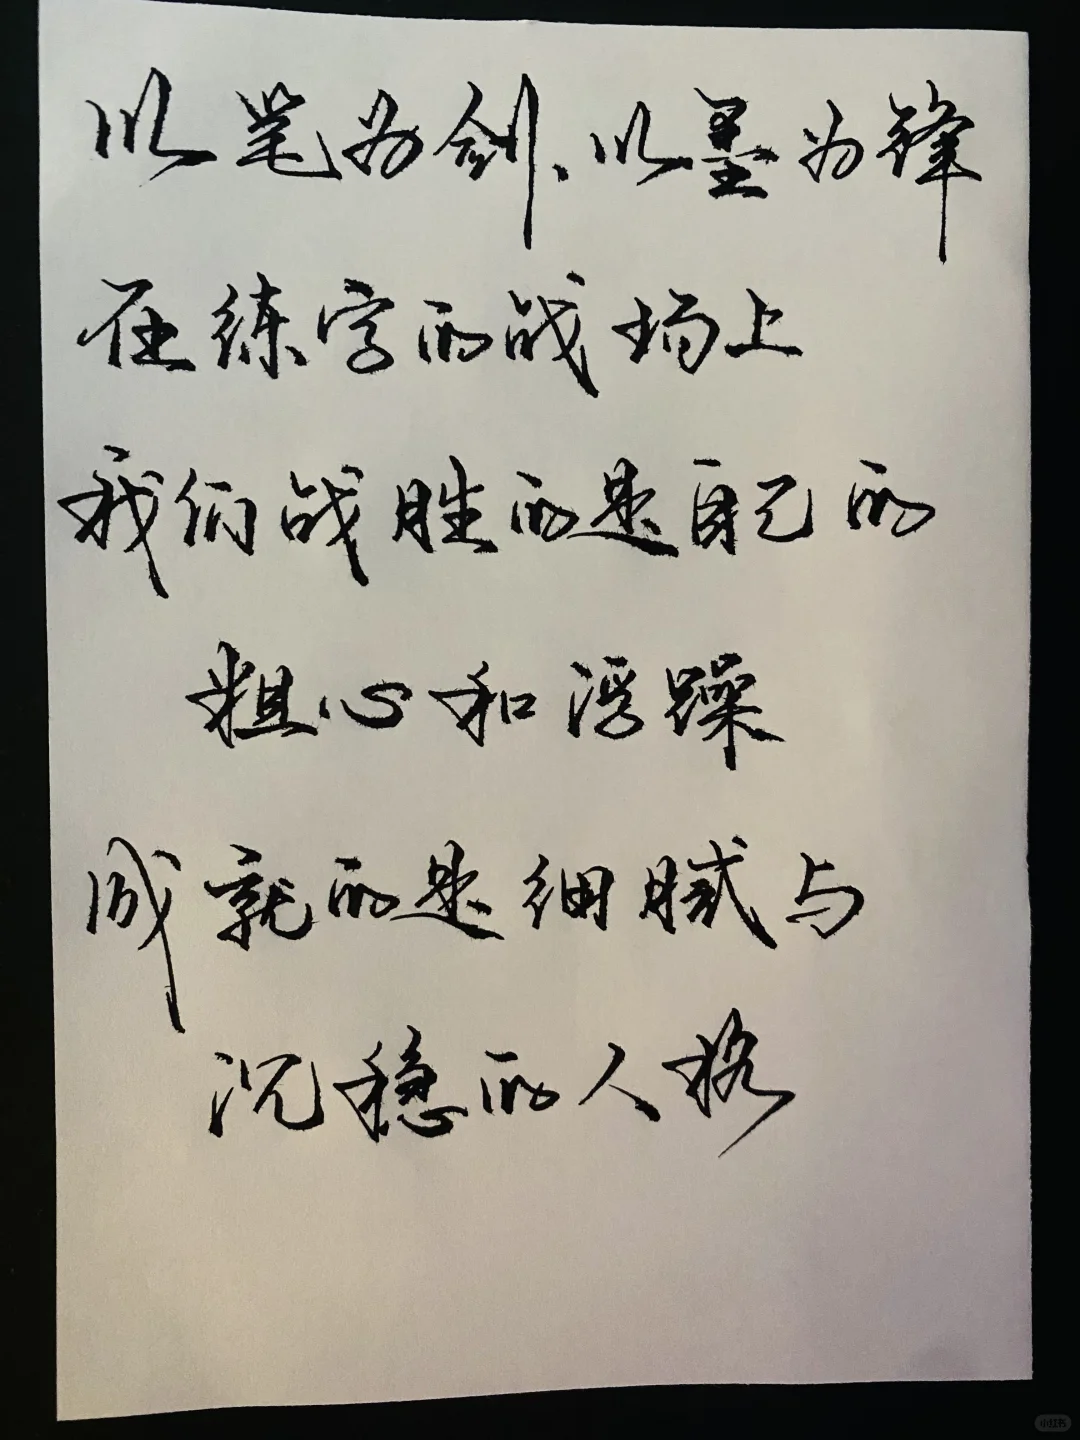 以笔为剑、以墨为锋
在练字的战场上
我们战胜的是自己的
粗心和浮躁
成就的是细腻与
沉稳的人格
小红书